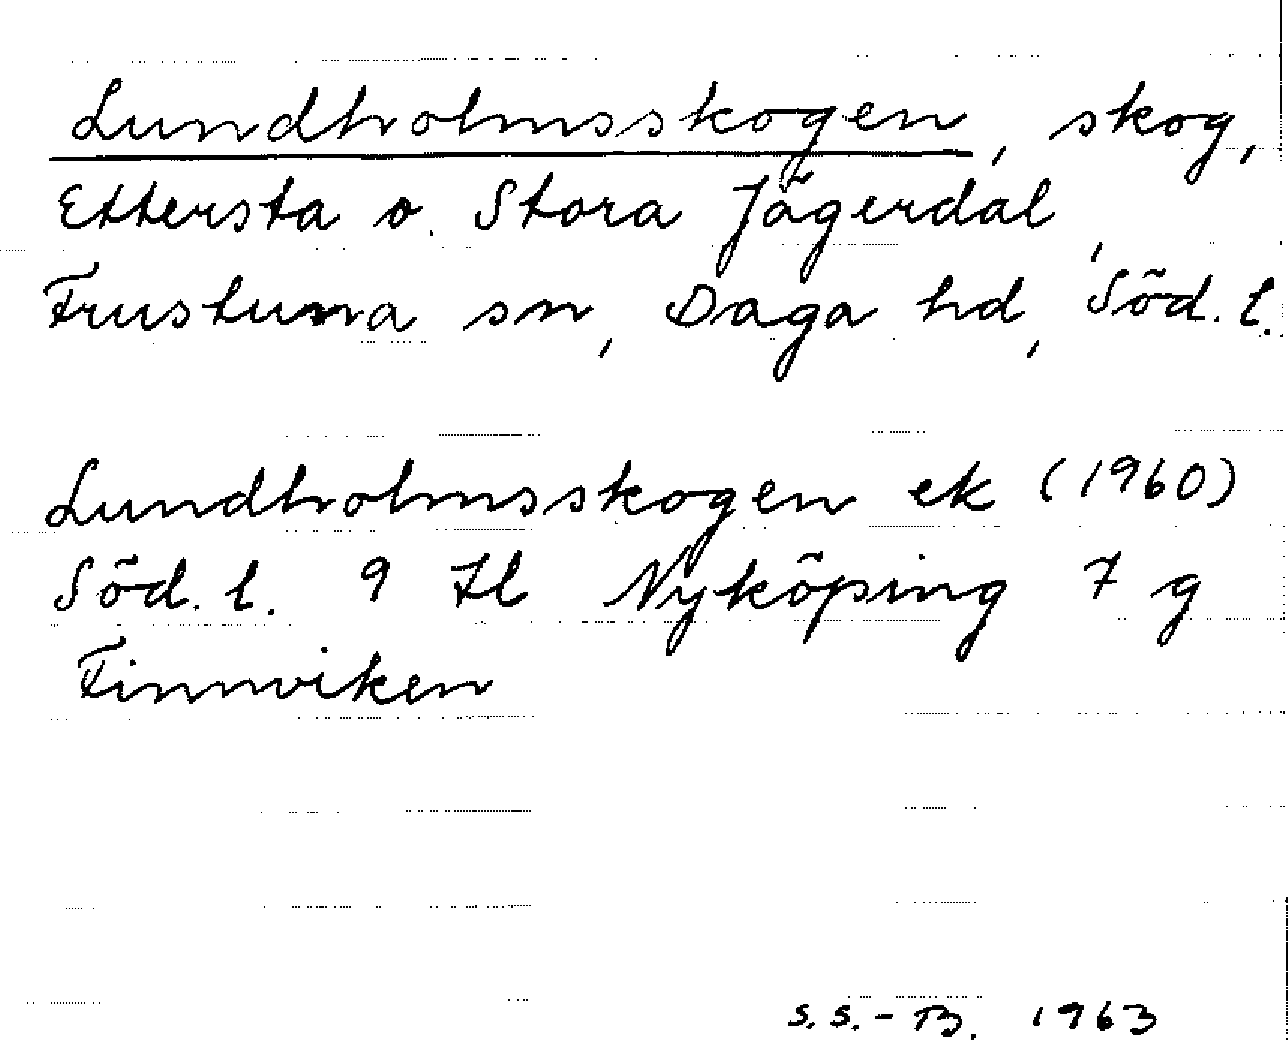 Lundholmsskogen, skog,
Ettersta o. Stora Jägerdal,
Frustuna sn, Daga hd, Söd. l.
Lundholmsskogen ek (1960)
Söd. l. 9 Il Nyköping 7 g
Finnviken
S.S.-B. 1963